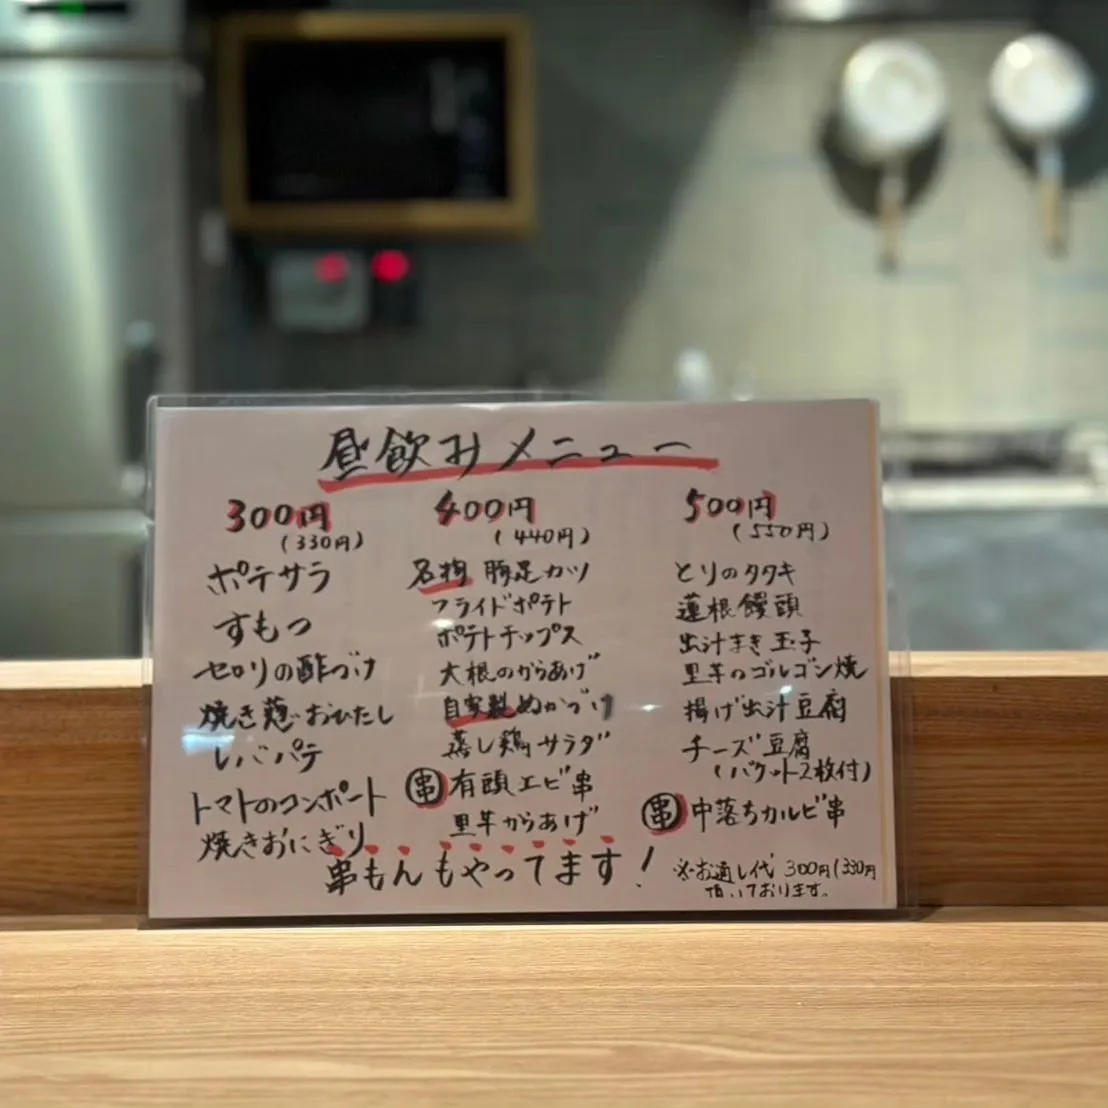 昼飲みメニュー
300円
(330円)
ポテサラ
すもつ
セロリの酢づけ
焼き葱おひたし
レバパテ
トマトのコンポート
焼きおにぎり
400円
(440円)
名物 豚足カツ
フライドポテト
ポテトチップス
大根のからあげ
自家製ぬかづけ
蒸し鶏サラダ
串 有頭エビ串
里芋からあげ
500円
(550円)
とりのタタキ
蓮根饅頭
出汁まき玉子
里芋のゴルゴン焼
揚げ出汁豆腐
チーズ豆腐
(バケット2枚付)
串 中落ちカルビ串
串もんもやってます!
※お通し代 300円(330円
頂いております。